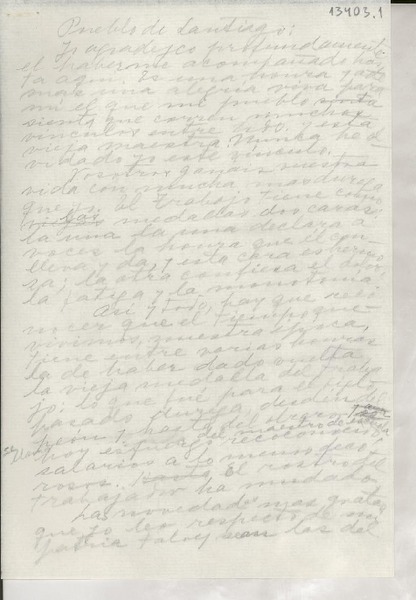 13403.1
Pueblo de Santiago:
Yo agradezco profundamente
el haberme acompañado has-
ta aquí. Es una honra y ade-
más una alegría viva para
mí el que mi pueblo
sienta que corren muchos
vínculos entre Uds. y esta
vieja maestra. Nunca he ol-
vidado yo este vínculo.
Vosotros ganáis vuestra
vida con mucha más dureza
que yo. El trabajo tiene como
medallas dos caras:
la una declara a
voces la honra que él con-
lleva y da, y esta cara es
la otra confiesa el
la fatiga y la monotonía.
Así y todo, hay que reco-
nocer que el tiempo que
vivimos, nuestra época,
tiene entre varias honras
la de haber dado vuelta
la vieja medalla del traba-
jo: lo que fue para el
pasado dureza, desdén del
peón y hasta del obrero,
hoy es
salarios a lo menos
rosos. El rostro del
trabajador ha mudado.
Las novedades más gratas
que yo leo respecto de mi
patria tal vez sean las del